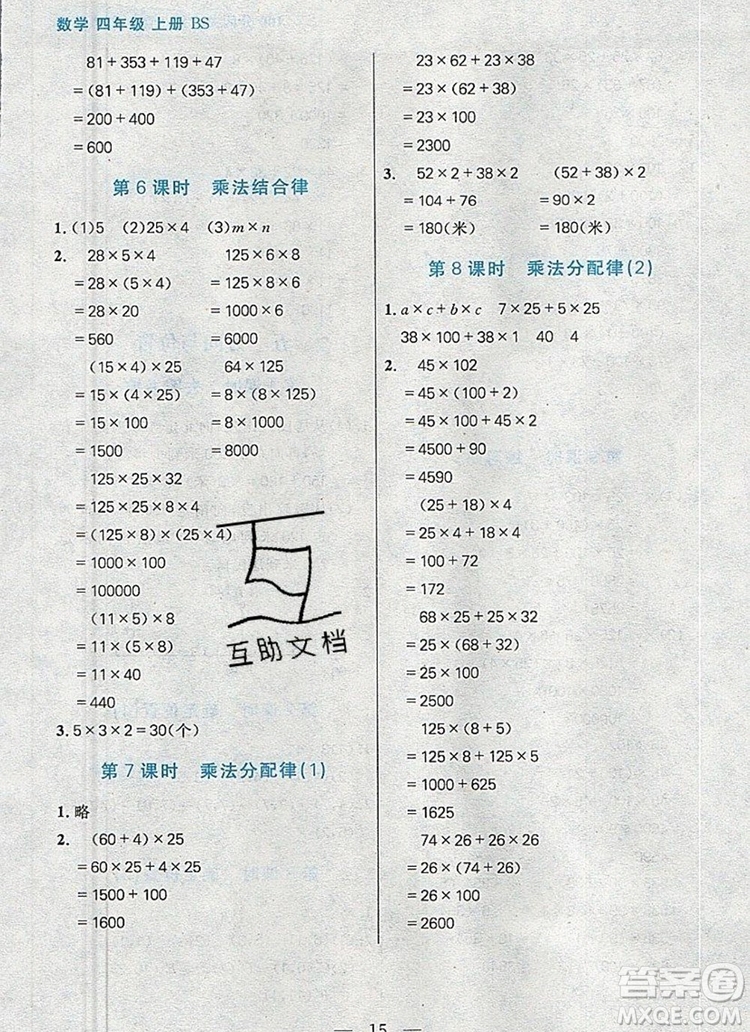 数学 四年级 上册 BS
81+353+119+47
=(81+119)+(353+47)
=200+400
=600
第6课时 乘法结合律
1.(1)5 (2)25×4 (3)m×n
2. 28×5×4 125×6×8
=28×(5×4) =125×8×6
=28×20 =1000×6
=560 =6000
(15×4)×25 64×125
=15×(4×25) =8×(8×125)
=15×100 =8×1000
=1500 =8000
125×25×32
=125×25×8×4
=(125×8)×(25×4)
=1000×100
=100000
(11×5)×8
=11×(5×8)
=11×40
=440
3.5×3×2=30(个)
第7课时 乘法分配律(1)
1.略
2. (60+4)×25
=60×25+4×25
=1500+100
=1600
23×62+23×38
=23×(62+38)
=23×100
=2300
3. 52×2+38×2 (52+38)×2
=104+76 =90×2
=180(米) =180(米)
第8课时 乘法分配律(2)
1.a×c+b×c 7×25+5×25
38×100+38×1 40 4
2. 45×102
=45×(100+2)
=45×100+45×2
=4500+90
=4590
(25+18)×4
=25×4+18×4
=100+72
=172
68×25+25×32
=25×(68+32)
=25×100
=2500
125×(8+5)
=125×8+125×5
=1000+625
=1625
74×26+26×26
=26×(74+26)
=26×100
=2600
互助文档
15
答案圈
MXQE.COM